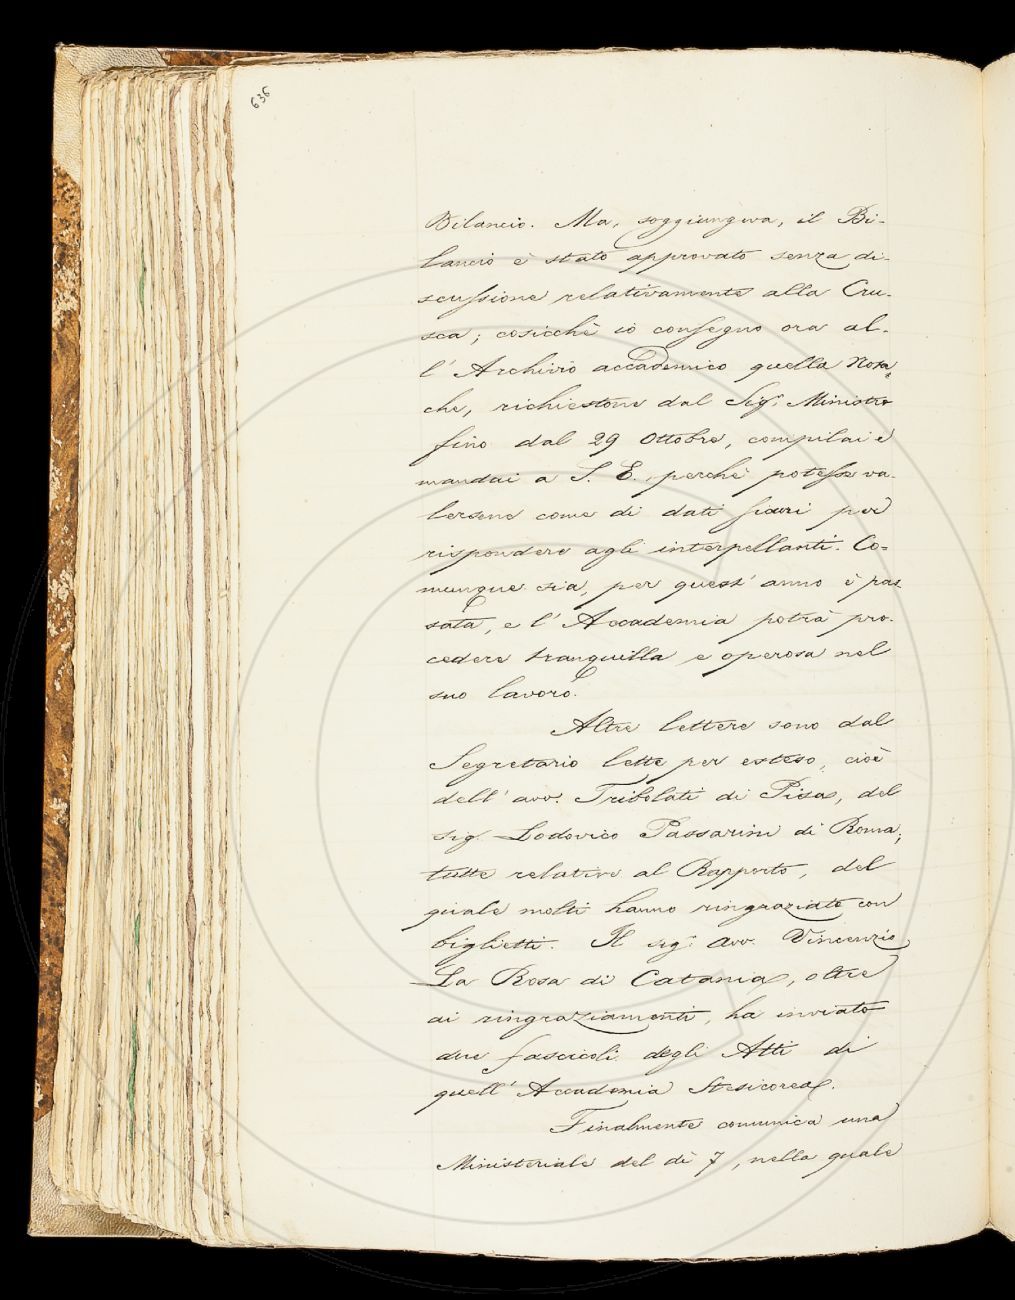 636
Bilancio. Ma, soggiungeva, il Bi-
lancio è stato approvato senza di-
scussione relativamente alla Cru-
sca; cosicchè io consegno ora al-
l'Archivio accademico quella Nota
che, richiestone dal Sig. Ministro
fino dal 29 Ottobre, compilai e
mandai a S. E., perchè potesse va-
lersene come di dati sicuri per
rispondere agli interpellanti. Co-
munque sia, per quest'anno è pas
sata, e l'Accademia potrà pro-
cedere tranquilla e operosa nel
suo lavoro.
Altre lettere sono dal
Segretario lette per esteso, cioè
dell'avv. Tribolati di Pisa, del
sig. Lodovico Passarini di Roma;
tutte relative al Rapporto, del
quale molti hanno ringraziato con
biglietti. Il sig. avv. Vincenzio
La Rosa di Catania, oltre
ai ringraziamenti, ha inviato
due fascicoli degli Atti di
quell'Accademia Stesicorea.
Finalmente comunica una
Ministeriale del dì 7, nella quale